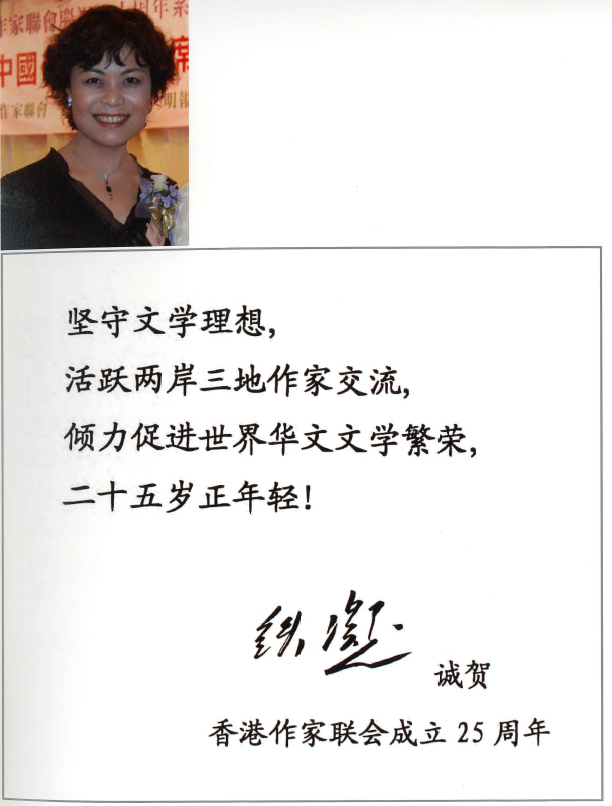 作家聯會慶
中國
席
作家聯會
明報
坚守文学理想,
活跃两岸三地作家交流,
倾力促进世界华文文学繁荣,
二十五岁正年轻!
铁凝
诚贺
香港作家联会成立 25 周年